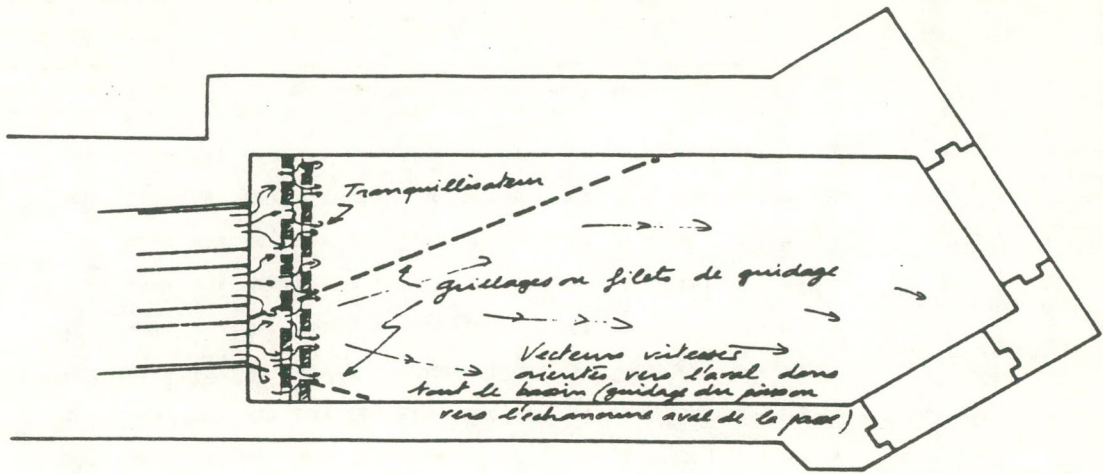 Tranquillisateur
Grillages ou filets de guidage
Vecteurs vitesses
orientés vers l'aval dans
tout le bassin (guidage du poisson
vers l'échancrure aval de la passe)